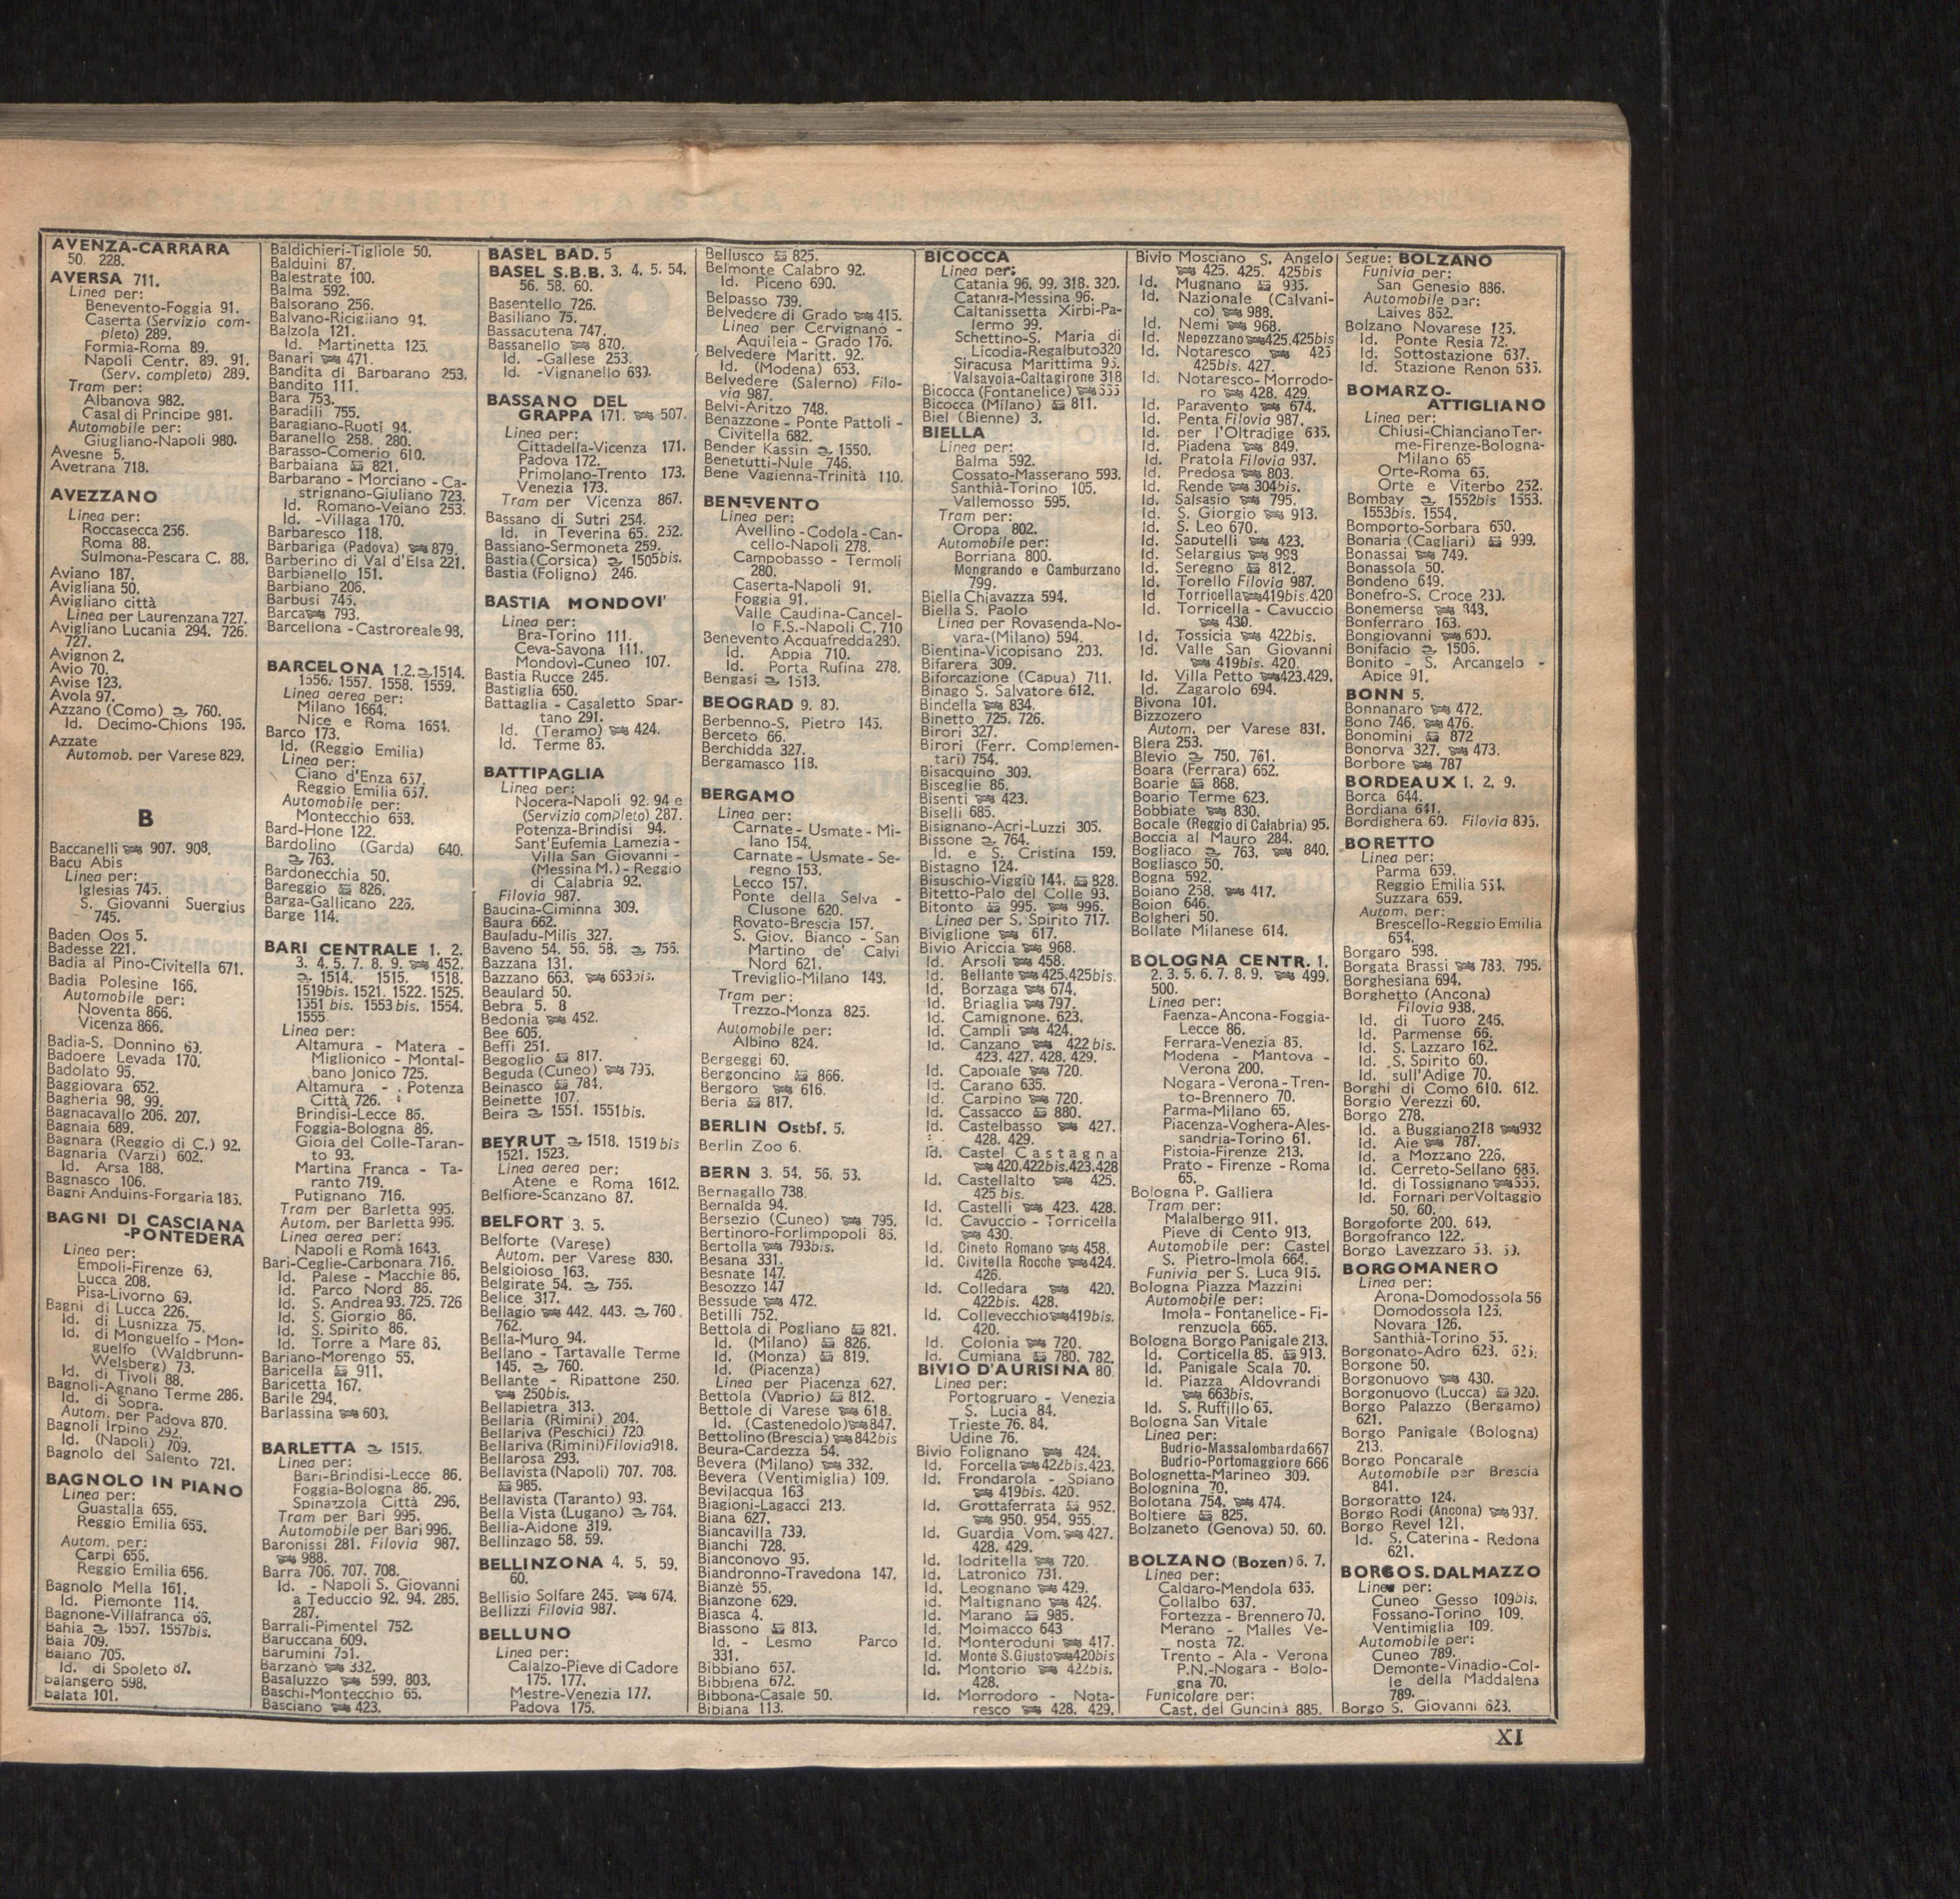 AVENZA-CARRARA
50. 228.
AVERSA 711.
Linea per:
Benevento-Foggia 91.
Caserta (Servizio com-
pleto) 289.
Formia-Roma 89.
Napoli Centr. 89. 91.
(Serv. completo) 289.
Tram per:
Albanova 982.
Casal di Principe 981.
Automobile per:
Giugliano-Napoli 980.
Avesne 5.
Avetrana 718.
AVEZZANO
Linea per:
Roccasecca 256.
Roma 88.
Sulmona-Pescara C. 88.
Aviano 187.
Avigliana 50.
Avigliano città
Linea per Laurenzana 727.
Avigliano Lucania 294. 726.
727.
Avignon 2.
Avio 70.
Avise 123.
Avola 97.
Azzano (Como) 760.
Id. Decimo-Chions 196.
Azzate
Automob. per Varese 829.
B
Baccanelli 907. 908.
Bacu Abis
Linea per:
Iglesias 745.
S. Giovanni Suergius
745.
Baden Oos 5.
Badesse 221.
Badia al Pino-Civitella 671.
Badia Polesine 166.
Automobile per:
Noventa 866.
Vicenza 866.
Badia-S. Donnino 69.
Badoere Levada 170.
Badolato 95.
Baggiovara 652.
Bagheria 98. 99.
Bagnacavallo 206. 207.
Bagnaia 689.
Bagnara (Reggio di C.) 92.
Bagnaria (Varzi) 602.
Id. Arsa 188.
Bagnasco 106.
Bagni Anduins-Forgaria 185.
BAGNI DI CASCIANA
-PONTEDERA
Linea per:
Empoli-Firenze 69.
Lucca 208.
Pisa-Livorno 69.
Bagni di Lucca 226.
Id. di Lusnizza 75.
Id. di Monguelfo - Mon-
guelfo (Waldbrunn-
Welsberg) 73.
Id. di Tivoli 88.
Bagnoli-Agnano Terme 286.
Id. di Sopra.
Autom. per Padova 870.
Bagnoli Irpino 292.
Id. (Napoli) 709.
Bagnolo del Salento 721.
BAGNOLO IN PIANO
Linea per:
Guastalla 655.
Reggio Emilia 655.
Autom. per:
Carpi 656.
Reggio Emilia 656.
Bagnolo Mella 161.
Id. Piemonte 114.
Bagnone-Villafranca 66.
Bahia 1557. 1557bis.
Baia 709.
Baiano 705.
Id. di Spoleto 87.
Balangero 598.
Balata 101.
Baldichieri-Tigliole 50.
Balduini 87.
Balestrate 100.
Balma 592.
Balsorano 256.
Balvano-Ricigliano 94.
Balzola 121.
Id. Martinetta 125.
Banari 471.
Bandita di Barbarano 253.
Bandito 111.
Bara 753.
Baradili 755.
Baragiano-Ruoti 94.
Baranello 258. 280.
Barasso-Comerio 610.
Barbaiana 821.
Barbarano - Morciano - Ca-
strignano-Giuliano 723.
Id. Romano-Veiano 253.
Id. -Villaga 170.
Barbaresco 118.
Barbariga (Padova) 879.
Barberino di Val d'Elsa 221.
Barbianello 151.
Barbiano 206.
Barbusi 745.
Barca 793.
Barcellona - Castroreale 98.
BARCELONA 1.2. 1514.
1556. 1557. 1558. 1559.
Linea aerea per:
Milano 1664.
Nice e Roma 1664.
Barco 173.
Id. (Reggio Emilia)
Linea per:
Ciano d'Enza 657.
Reggio Emilia 657.
Automobile per:
Montecchio 658.
Bard-Hone 122.
Bardolino (Garda) 640.
763.
Bardonecchia 50.
Bareggio 826.
Barga-Gallicano 226.
Barge 114.
BARI CENTRALE 1. 2.
3. 4. 5. 7. 8. 9. 452.
1514. 1515. 1518.
1519bis. 1521. 1522. 1525.
1551 bis. 1553 bis. 1554.
1555
Linea per:
Altamura - Matera -
Miglionico - Montal-
bano Jonico 725.
Altamura - Potenza
Città 726.
Brindisi-Lecce 86.
Foggia-Bologna 86.
Gioia del Colle-Taran-
to 93.
Martina Franca - Ta-
ranto 719.
Putignano 716.
Tram per Barletta 995.
Autom. per Barletta 996.
Linea aerea per:
Napoli e Roma 1643.
Bari-Ceglie-Carbonara 716.
Id. Palese - Macchie 86.
Id. Parco Nord 86.
Id. S. Andrea 93. 725. 726
Id. S. Giorgio 86.
Id. S. Spirito 86.
Id. Torre a Mare 86.
Bariano-Morengo 55.
Baricella 911.
Baricetta 167.
Barile 294.
Barlassina 603.
BARLETTA 1515.
Linea per:
Bari-Brindisi-Lecce 86.
Foggia-Bologna 86.
Spinazzola Città 296.
Tram per Bari 995.
Automobile per Bari 996.
Baronissi 281. Filovia 987.
988.
Barra 706. 707. 708.
Id. - Napoli S. Giovanni
a Teduccio 92. 94. 285.
287.
Barrali-Pimentel 752.
Baruccana 609.
Barumini 751.
Barzanò 332.
Basaluzzo 599. 803.
Baschi-Montecchio 65.
Basciano 423.
BASEL BAD. 5
BASEL S.B.B. 3. 4. 5. 54.
56. 58. 60.
Basentello 726.
Basiliano 75.
Bassacutena 747.
Bassanello 870.
Id. -Gallese 253.
Id. -Vignanello 689.
BASSANO DEL
GRAPPA 171. 507.
Linea per:
Cittadella-Vicenza 171.
Padova 172.
Primolano-Trento 173.
Venezia 173.
Tram per Vicenza 867.
Bassano di Sutri 254.
Id. in Teverina 65. 252.
Bassiano-Sermoneta 259.
Bastia (Corsica) 1505bis.
Bastia (Foligno) 246.
BASTIA MONDOVI'
Linea per:
Bra-Torino 111.
Ceva-Savona 111.
Mondovì-Cuneo 107.
Bastia Rucce 245.
Bastiglia 650.
Battaglia - Casaletto Spar-
tano 291.
Id. (Teramo) 424.
Id. Terme 85.
BATTIPAGLIA
Linea per:
Nocera-Napoli 92. 94 e
(Servizio completo) 287.
Potenza-Brindisi 94.
Sant'Eufemia Lamezia -
Villa San Giovanni -
(Messina M.) - Reggio
di Calabria 92.
Filovia 987.
Baucina-Ciminna 309.
Baura 662.
Bauladu-Milis 327.
Baveno 54. 56. 58. 756.
Bazzana 131.
Bazzano 663. 663bis.
Beaulard 50.
Bebra 5. 8
Bedonia 452.
Bee 605.
Beffi 251.
Begoglio 817.
Beguda (Cuneo) 795.
Beinasco 784.
Beinette 107.
Beira 1551. 1551bis.
BEYRUT 1518. 1519 bis
1521. 1523.
Linea aerea per:
Atene e Roma 1612.
Belfiore-Scanzano 87.
BELFORT 3. 5.
Belforte (Varese)
Autom. per Varese 830.
Belgioioso 163.
Belgirate 54. 756.
Belice 317.
Bellagio 442. 443. 760.
762.
Bella-Muro 94.
Bellano - Tartavalle Terme
145. 760.
Bellante - Ripattone 250.
250bis.
Bellapietra 313.
Bellaria (Rimini) 204.
Bellariva (Peschici) 720
Bellariva (Rimini) Filovia 918.
Bellarosa 293.
Bellavista (Napoli) 707. 708.
985.
Bellavista (Taranto) 93.
Bella Vista (Lugano) 764.
Bellia-Aidone 319.
Bellinzago 58. 59.
BELLINZONA 4. 5. 59.
60.
Bellisio Solfare 245. 674.
Bellizzi Filovia 987.
BELLUNO
Linea per:
Calalzo-Pieve di Cadore
175. 177.
Mestre-Venezia 177.
Padova 175.
Bellusco 825.
Belmonte Calabro 92.
Id. Piceno 690.
Belpasso 739.
Belvedere di Grado 415.
Linea per Cervignano -
Aquileia - Grado 176.
Belvedere Maritt. 92.
Id. (Modena) 653.
Belvedere (Salerno) Filo-
via 987.
Belvi-Aritzo 748.
Benazzone - Ponte Pattoli -
Civitella 682.
Bender Kassin 1550.
Benetutti-Nule 746.
Bene Vagienna-Trinità 110.
BENEVENTO
Linea per:
Avellino - Codola - Can-
cello-Napoli 278.
Campobasso - Termoli
280.
Caserta-Napoli 91.
Foggia 91.
Valle Caudina-Cancel-
lo F.S.-Napoli C. 710
Benevento Acquafredda 280.
Id. Appia 710.
Id. Porta Rufina 278.
Bengasi 1513.
BEOGRAD 9. 80.
Berbenno-S. Pietro 145.
Berceto 66.
Berchidda 327.
Bergamasco 118.
BERGAMO
Linea per:
Carnate - Usmate - Mi-
lano 154.
Carnate - Usmate - Se-
regno 153.
Lecco 157.
Ponte della Selva -
Clusone 620.
Rovato-Brescia 157.
S. Giov. Bianco - San
Martino de' Calvi
Nord 621.
Treviglio-Milano 148.
Tram per:
Trezzo-Monza 825.
Automobile per:
Albino 824.
Bergeggi 60.
Bergoncino 866.
Bergoro 616.
Beria 817.
BERLIN Ostbf. 5.
Berlin Zoo 6.
BERN 3. 54. 56. 58.
Bernagallo 738.
Bernalda 94.
Bersezio (Cuneo) 795.
Bertinoro-Forlimpopoli 86.
Bertolla 793bis.
Besana 331.
Besnate 147.
Besozzo 147
Bessude 472.
Betilli 752.
Bettola di Pogliano 821.
Id. (Milano) 826.
Id. (Monza) 819.
Id. (Piacenza)
Linea per Piacenza 627.
Bettola (Vaprio) 812.
Bettole di Varese 618.
Id. (Castenedolo) 847.
Bettolino (Brescia) 842bis
Beura-Cardezza 54.
Bevera (Milano) 332.
Bevera (Ventimiglia) 109.
Bevilacqua 163
Biagioni-Lagacci 213.
Biana 627.
Biancavilla 739.
Bianchi 728.
Bianconovo 95.
Biandronno-Travedona 147.
Bianzè 55.
Bianzone 629.
Biasca 4.
Biassono 813.
Id. - Lesmo Parco
331.
Bibbiano 657.
Bibbiena 672.
Bibbona-Casale 50.
Bibiana 113.
BICOCCA
Linea per:
Catania 96. 99. 318. 320.
Catania-Messina 96.
Caltanissetta Xirbi-Pa-
lermo 99.
Schettino-S. Maria di
Licodia-Regalbuto 320
Siracusa Marittima 96.
Valsavoia-Caltagirone 318
Bicocca (Fontanelice)
Bicocca (Milano) 811.
Biel (Bienne) 3.
BIELLA
Linea per:
Balma 592.
Cossato-Masserano 593.
Santhià-Torino 105.
Vallemosso 595.
Tram per:
Oropa 802.
Automobile per:
Borriana 800.
Mongrando e Camburzano
799.
Biella Chiavazza 594.
Biella S. Paolo
Linea per Rovasenda-No-
vara-(Milano) 594.
Bientina-Vicopisano 203.
Bifarera 309.
Biforcazione (Capua) 711.
Binago S. Salvatore 612.
Bindella 834.
Binetto 725. 726.
Birori 327.
Birori (Ferr. Complemen-
tari) 754.
Bisacquino 309.
Bisceglie 86.
Bisenti 423.
Biselli 685.
Bisignano-Acri-Luzzi 305.
Bissone 764.
Id. e S. Cristina 159.
Bistagno 124.
Bisuschio-Viggiù 144. 828.
Bitetto-Palo del Colle 93.
Bitonto 995. 996.
Linea per S. Spirito 717.
Biviglione 617.
Bivio Ariccia 968.
Id. Arsoli 458.
Id. Bellante 425.425bis.
Id. Borzaga 674.
Id. Briaglia 797.
Id. Camignone. 623.
Id. Campli 424.
Id. Canzano 422 bis.
423. 427. 428. 429.
Id. Capoiale 720.
Id. Carano 635.
Id. Carpino 720.
Id. Cassacco 880.
Id. Castelbasso 427.
428. 429.
Id. Castel Castagna
420.422bis.423.428
Id. Castellalto 425.
425 bis.
Id. Castelli 423. 428.
Id. Cavuccio - Torricella
430.
Id. Cineto Romano 458.
Id. Civitella Rocche 424.
426.
Id. Colledara 420.
422bis. 428.
Id. Collevecchio 419bis.
420.
Id. Colonia 720.
Id. Cumiana 780. 782.
BIVIO D'AURISINA 80
Linea per:
Portogruaro - Venezia
S. Lucia 84.
Trieste 76. 84.
Udine 76.
Bivio Folignano 424.
Id. Forcella 422bis.423.
Id. Frondarola - Spiano
419bis. 420.
Id. Grottaferrata 952.
950. 954. 955.
Id. Guardia Vom. 427.
428. 429.
Id. Iodritella 720.
Id. Latronico 731.
Id. Leognano 429.
Id. Maltignano 424.
Id. Marano 985.
Id. Moimacco 643
Id. Monteroduni 417.
Id. Monte S.Giusto 420bis
Id. Montorio 422bis.
428.
Id. Morrodoro - Nota-
resco 428. 429.
Bivio Mosciano S. Angelo
425. 425. 425bis
Id. Mugnano 935.
Id. Nazionale (Calvani-
co) 988.
Id. Nemi 968.
Id. Nepezzano 425.425bis
Id. Notaresco 425
425bis. 427.
Id. Notaresco-Morrodo-
ro 428. 429.
Id. Paravento 674.
Id. Penta Filovia 987.
Id. per l'Oltradige 635.
Id. Piadena 849.
Id. Pratola Filovia 937.
Id. Predosa 803.
Id. Rende 304bis.
Id. Salsasio 795.
Id. S. Giorgio 913.
Id. S. Leo 670.
Id. Saputelli 423.
Id. Selargius 998
Id. Seregno 812.
Id. Torello Filovia 987.
Id Torricella 419bis.420
Id. Torricella - Cavuccio
430.
Id. Tossicia 422bis.
Id. Valle San Giovanni
419bis. 420.
Id. Villa Petto 423.429.
Id. Zagarolo 694.
Bivona 101.
Bizzozero
Autom. per Varese 831.
Blera 253.
Blevio 750. 761.
Boara (Ferrara) 662.
Boarie 868.
Boario Terme 623.
Bobbiate 830.
Bocale (Reggio di Calabria) 95.
Boccia al Mauro 284.
Bogliaco 763. 840.
Bogliasco 50.
Bogna 592.
Boiano 258. 417.
Boion 646.
Bolgheri 50.
Bollate Milanese 614.
BOLOGNA CENTR. 1.
2. 3. 5. 6. 7. 8. 9. 499.
500.
Linea per:
Faenza-Ancona-Foggia-
Lecce 86.
Ferrara-Venezia 85.
Modena - Mantova -
Verona 200.
Nogara - Verona - Tren-
to-Brennero 70.
Parma-Milano 65.
Piacenza-Voghera-Ales-
sandria-Torino 61.
Pistoia-Firenze 213.
Prato - Firenze - Roma
65.
Bologna P. Galliera
Tram per:
Malalbergo 911.
Pieve di Cento 913.
Automobile per: Castel
S. Pietro-Imola 664.
Funivia per S. Luca 915.
Bologna Piazza Mazzini
Automobile per:
Imola - Fontanelice - Fi-
renzuola 665.
Bologna Borgo Panigale 213.
Id. Corticella 85. 913.
Id. Panigale Scala 70.
Id. Piazza Aldovrandi
663bis.
Id. S. Ruffillo 65.
Bologna San Vitale
Linea per:
Budrio-Massalombarda 667
Budrio-Portomaggiore 666
Bolognetta-Marineo 309.
Bolognina 70.
Bolotana 754. 474.
Boltiere 825.
Bolzaneto (Genova) 50. 60.
BOLZANO (Bozen) 6. 7.
Linea per:
Caldaro-Mendola 635.
Collalbo 637.
Fortezza - Brennero 70.
Merano - Malles Ve-
nosta 72.
Trento - Ala - Verona
P.N.-Nogara - Bolo-
gna 70.
Funicolare per:
Cast. del Guncinà 885.
Segue: BOLZANO
Funivia per:
San Genesio 886.
Automobile per:
Laives 852.
Bolzano Novarese 125.
Id. Ponte Resia 72.
Id. Sottostazione 637.
Id. Stazione Renon 635.
BOMARZO-
ATTIGLIANO
Linea per:
Chiusi-Chianciano Ter-
me-Firenze-Bologna-
Milano 65
Orte-Roma 65.
Orte e Viterbo 252.
Bombay 1552bis 1553.
1553bis. 1554.
Bomporto-Sorbara 650.
Bonaria (Cagliari) 999.
Bonassai 749.
Bonassola 50.
Bondeno 649.
Bonefro-S. Croce 280.
Bonemerse 848.
Bonferraro 163.
Bongiovanni 600.
Bonifacio 1506.
Bonito - S. Arcangelo -
Apice 91.
BONN 5.
Bonnanaro 472.
Bono 746. 476.
Bonomini 872
Bonorva 327. 473.
Borbore 787
BORDEAUX 1. 2. 9.
Borca 644.
Bordiana 641.
Bordighera 60. Filovia 895.
BORETTO
Linea per:
Parma 659.
Reggio Emilia 654.
Suzzara 659.
Autom. per:
Brescello-Reggio Emilia
654.
Borgaro 598.
Borgata Brassi 783. 795.
Borghesiana 694.
Borghetto (Ancona)
Filovia 938.
Id. di Tuoro 246.
Id. Parmense 66.
Id. S. Lazzaro 162.
Id. S. Spirito 60.
Id. sull'Adige 70.
Borghi di Como 610. 612.
Borgio Verezzi 60.
Borgo 278.
Id. a Buggiano 218 932
Id. Aie 787.
Id. a Mozzano 226.
Id. Cerreto-Sellano 685.
Id. di Tossignano
Id. Fornari per Voltaggio
50. 60.
Borgoforte 200. 649.
Borgofranco 122.
Borgo Lavezzaro 53. 59.
BORGOMANERO
Linea per:
Arona-Domodossola 56
Domodossola 125.
Novara 126.
Santhià-Torino 55.
Borgonato-Adro 623. 625.
Borgone 50.
Borgonuovo 430.
Borgonuovo (Lucca) 920.
Borgo Palazzo (Bergamo)
621.
Borgo Panigale (Bologna)
213.
Borgo Poncarale
Automobile per Brescia
841.
Borgoratto 124.
Borgo Rodi (Ancona) 937.
Borgo Revel 121.
Id. S. Caterina - Redona
621.
BORGO S. DALMAZZO
Linea per:
Cuneo Gesso 109bis.
Fossano-Torino 109.
Ventimiglia 109.
Automobile per:
Cuneo 789.
Demonte-Vinadio-Col-
le della Maddalena
789.
Borgo S. Giovanni 623.
XI